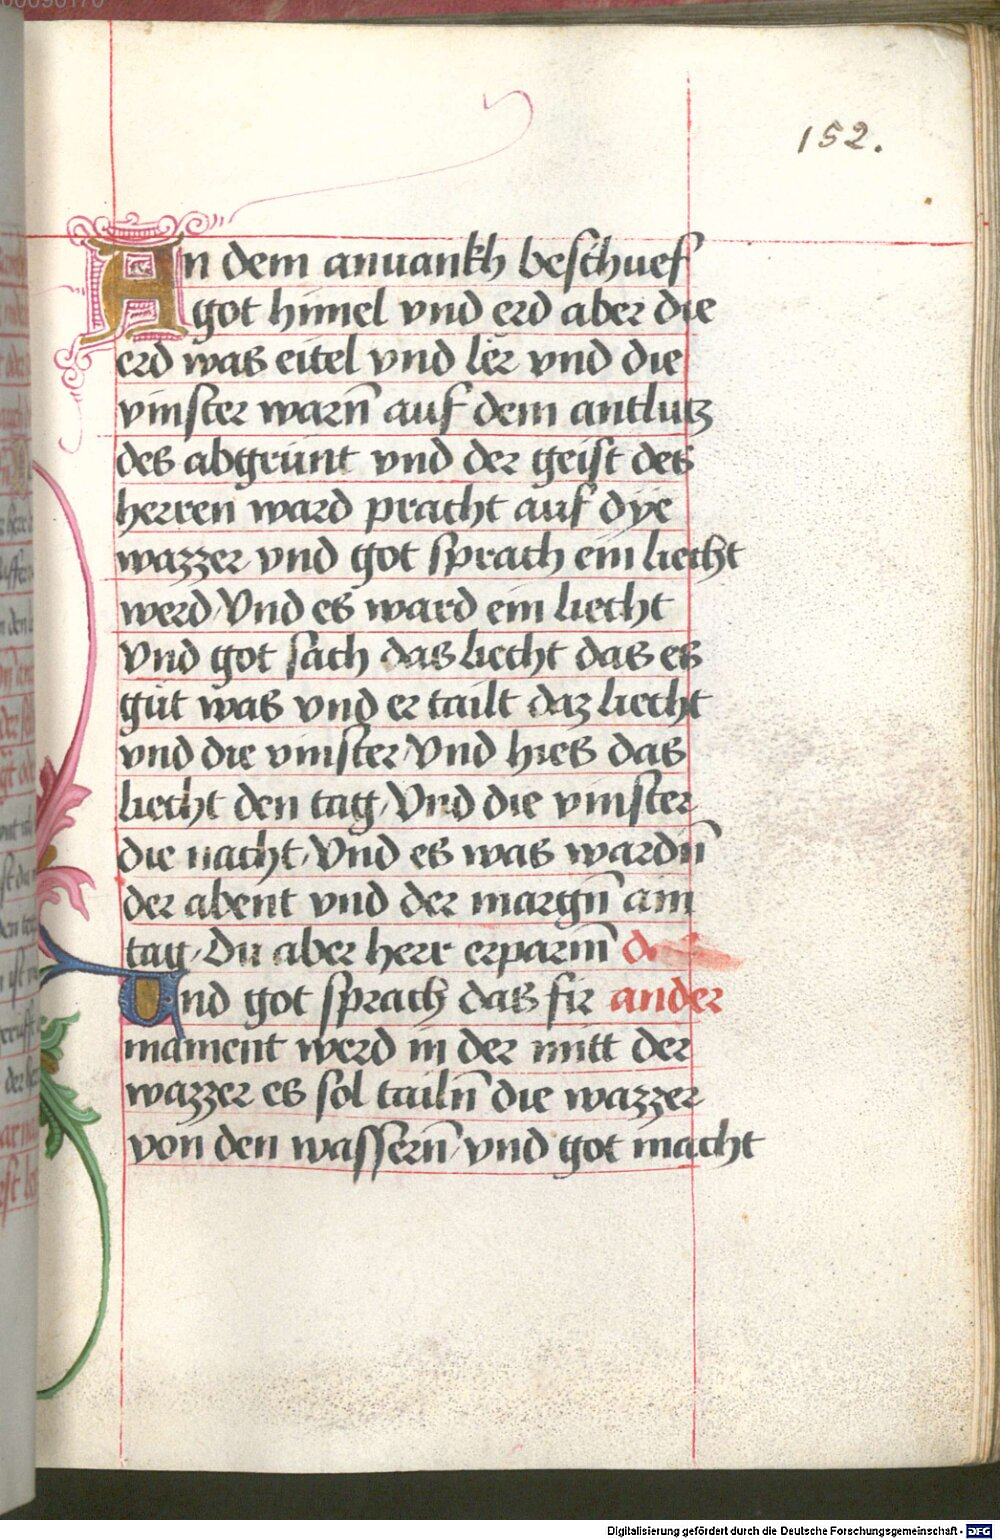 152.
An dem anuankh beschuef
got himel vnd erd aber die
erd was eitel vnd ler vnd die
vinster warn̄ auf dem antlutz
des abgrünt vnd der geist des
herren ward pracht auf dÿe
wazzer vnd got sprach ein liecht
werd Vnd es ward ein liecht
Vnd got sach das liecht das es
gůt was vnd er tailt daz liecht
vnd die vinster Vnd hies das
liecht den tag Vnd die vinster
die nacht Vnd es was wardn̄
der abent vnd der margn̄ ain
tag Du aber herr erparm̄
Vnd got sprach das fir ander
mament werd in der mitt der
wazzer es sol tailn̄ die wazzer
von den wassern̄ vnd got macht
Digitalisierung gefördert durch die Deutsche Forschungsgemeinschaft - DFG